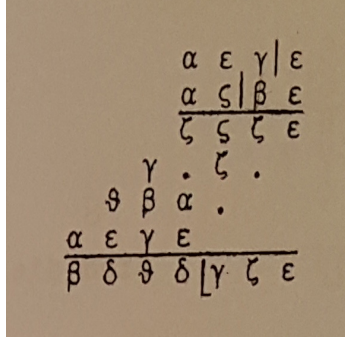 α ε γ| ε
α ς|β ε
ζ ς ζ ε
γ . ζ .
ϑ β α .
α ε γ ε
β δ ϑ δ⌊γ ζ ε